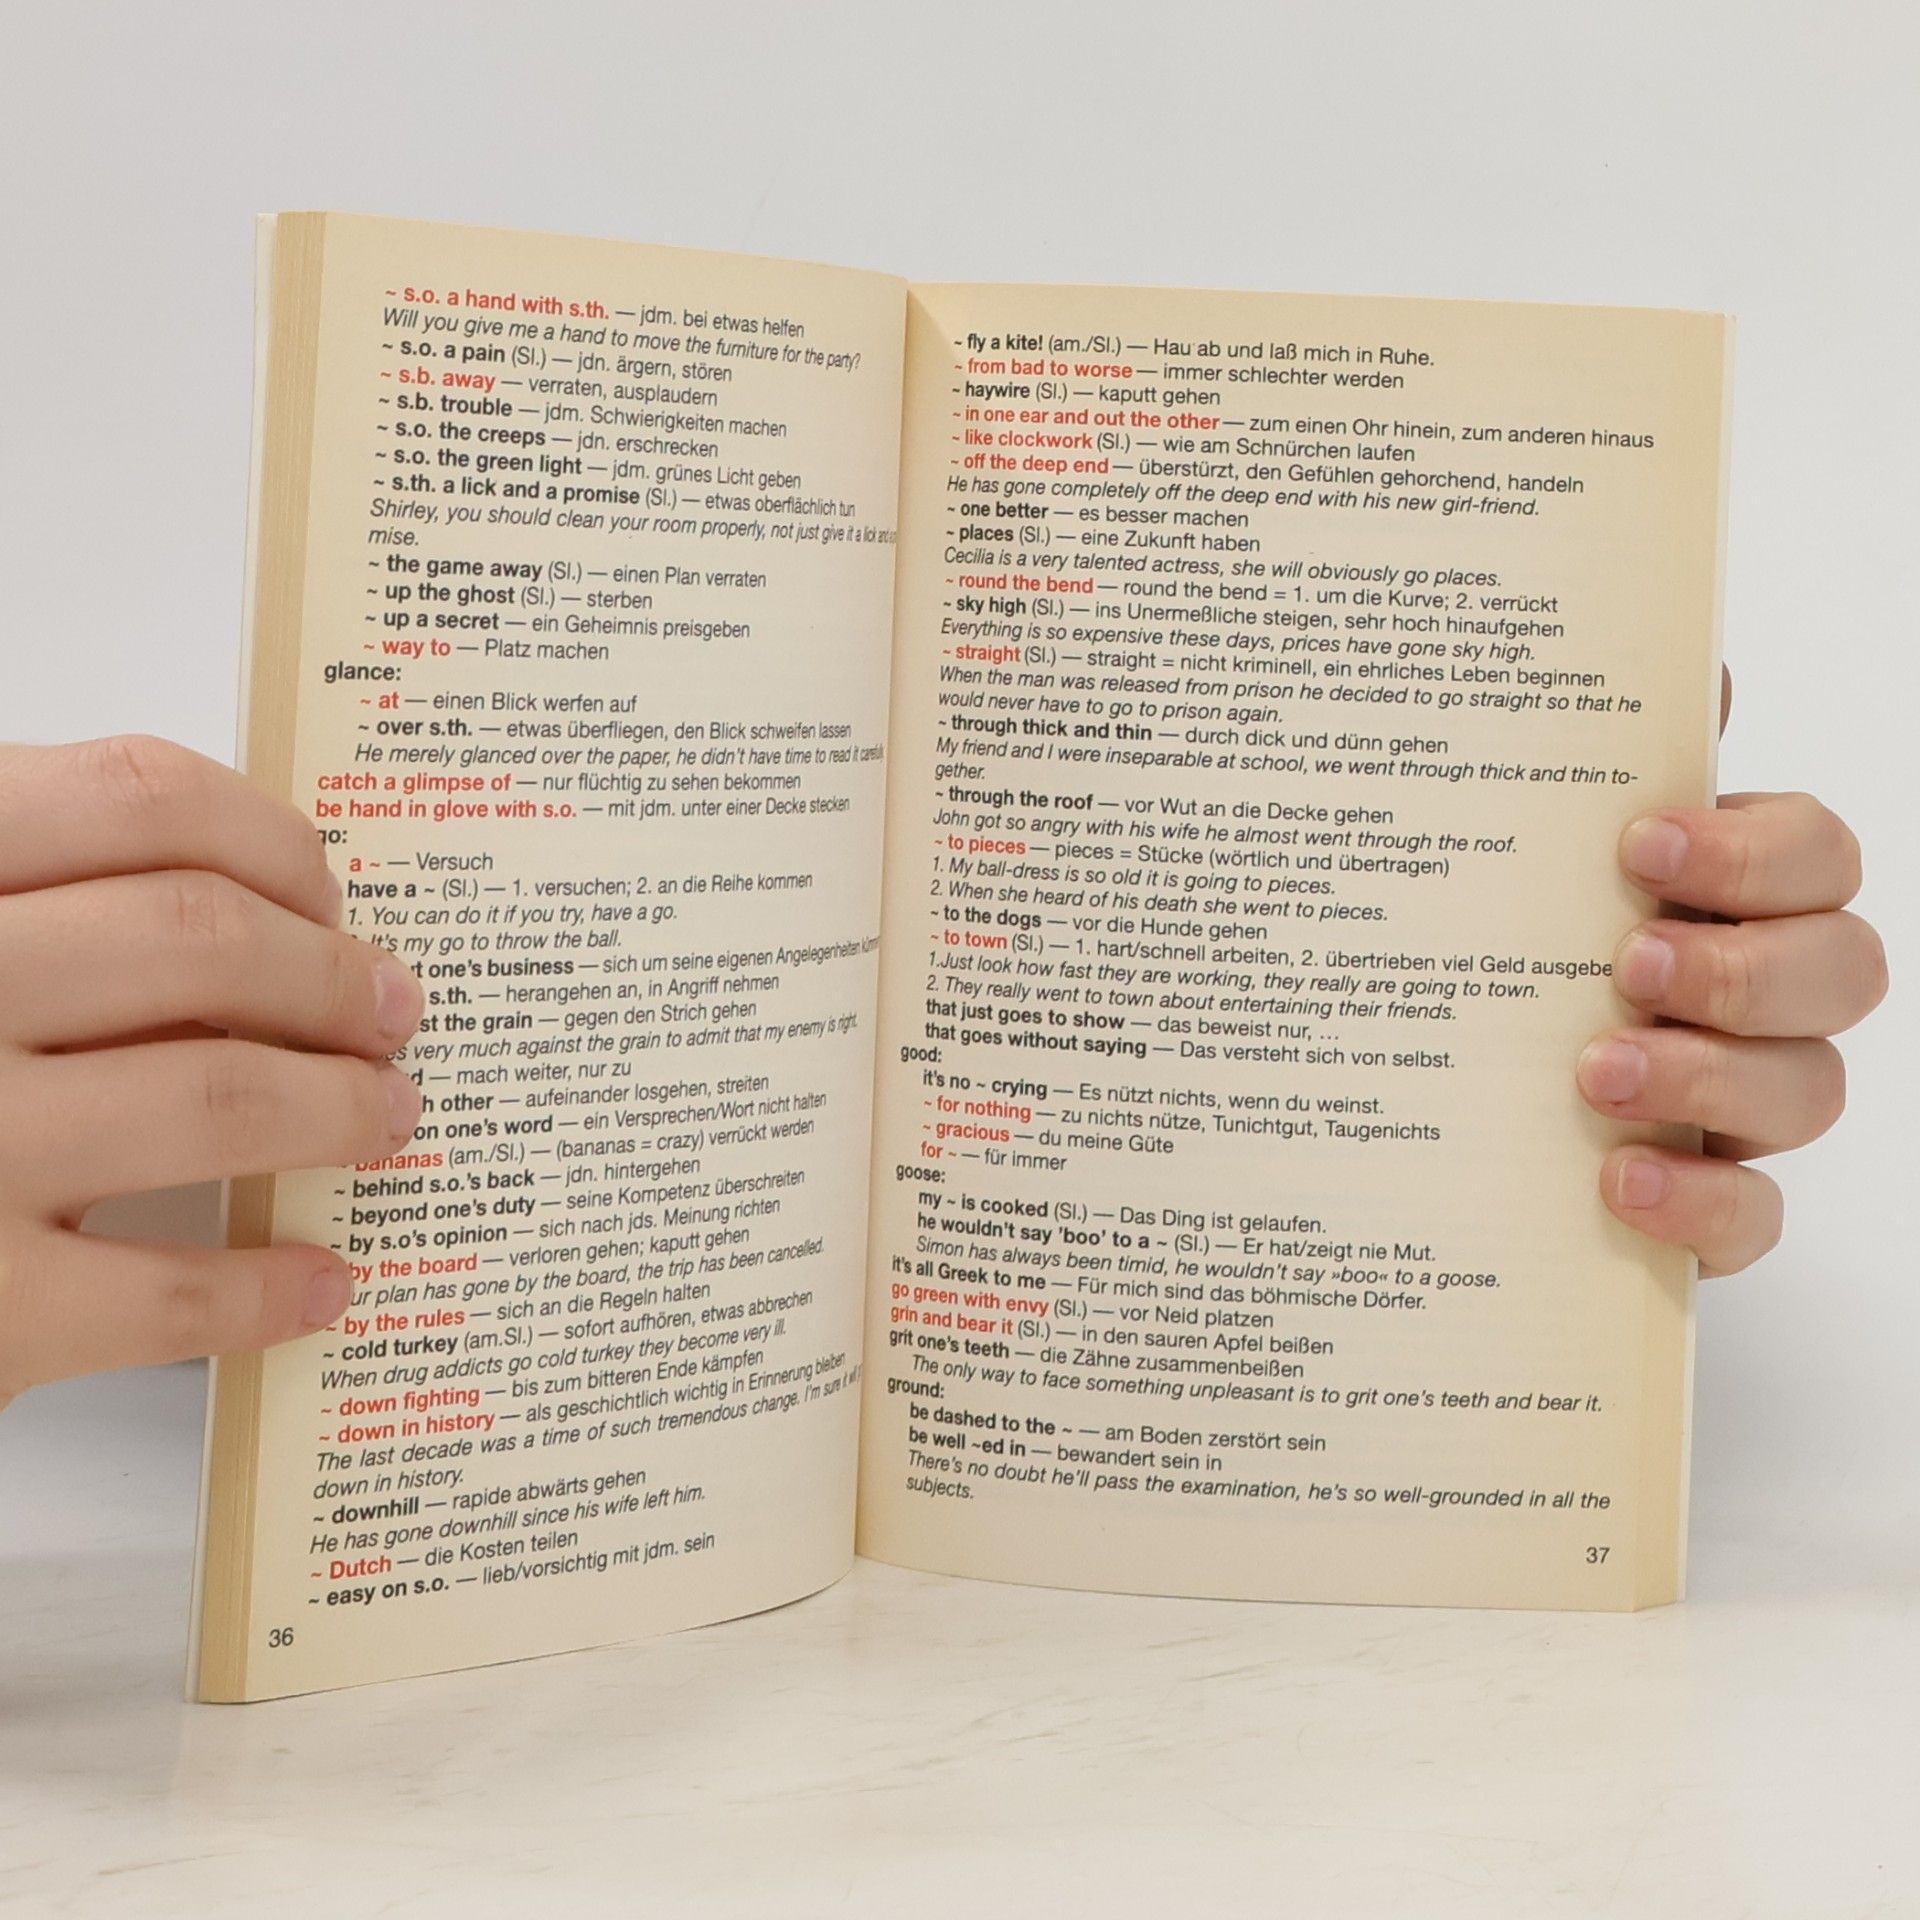 ~ s.o. a hand with s.th. — jdm. bei etwas helfen
Will you give me a hand to move the furniture for the party?
~ s.o. a pain (Sl.) — jdn. ärgern, stören
~ s.b. away — verraten, ausplaudern
~ s.b. trouble — jdm. Schwierigkeiten machen
~ s.o. the creeps — jdn. erschrecken
~ s.o. the green light — jdm. grünes Licht geben
~ s.th. a lick and a promise (Sl.) — etwas oberflächlich tun
Shirley, you should clean your room properly, not just give it a lick and a
mise.
~ the game away (Sl.) — einen Plan verraten
~ up the ghost (Sl.) — sterben
~ up a secret — ein Geheimnis preisgeben
~ way to — Platz machen
glance:
~ at — einen Blick werfen auf
~ over s.th. — etwas überfliegen, den Blick schweifen lassen
He merely glanced over the paper, he didn't have time to read it
catch a glimpse of — nur flüchtig zu sehen bekommen
be hand in glove with s.o. — mit jdm. unter einer Decke stecken
go:
a ~ — Versuch
have a ~ (Sl.) — 1. versuchen; 2. an die Reihe kommen
1. You can do it if you try, have a go.
It's my go to throw the ball.
one's business — sich um seine eigenen Angelegenheiten
s.th. — herangehen an, in Angriff nehmen
st the grain — gegen den Strich gehen
very much against the grain to admit that my enemy is right.
— mach weiter, nur zu
h other — aufeinander losgehen, streiten
on one's word — ein Versprechen/Wort nicht halten
bananas (am./Sl.) — (bananas = crazy) verrückt werden
~ behind s.o.'s back — jdn. hintergehen
~ beyond one's duty — seine Kompetenz überschreiten
~ by s.o's opinion — sich nach jds. Meinung richten
by the board — verloren gehen; kaputt gehen
ur plan has gone by the board, the trip has been cancelled.
~ by the rules — sich an die Regeln halten
~ cold turkey (am.Sl.) — sofort aufhören, etwas abbrechen
When drug addicts go cold turkey they become very ill.
~ down fighting — bis zum bitteren Ende kämpfen
~ down in history — als geschichtlich wichtig in Erinnerung bleiben
The last decade was a time of such tremendous change. I'm sure it will
down in history.
~ downhill — rapide abwärts gehen
He has gone downhill since his wife left him.
~ Dutch — die Kosten teilen
~ easy on s.o. — lieb/vorsichtig mit jdm. sein
36
~ fly a kite! (am./Sl.) — Hau ab und laß mich in Ruhe.
~ from bad to worse — immer schlechter werden
~ haywire (Sl.) — kaputt gehen
~ in one ear and out the other — zum einen Ohr hinein, zum anderen hinaus
~ like clockwork (Sl.) — wie am Schnürchen laufen
~ off the deep end — überstürzt, den Gefühlen gehorchend, handeln
He has gone completely off the deep end with his new girl-friend.
~ one better — es besser machen
~ places (Sl.) — eine Zukunft haben
Cecilia is a very talented actress, she will obviously go places.
~ round the bend — round the bend = 1. um die Kurve; 2. verrückt
~ sky high (Sl.) — ins Unermeßliche steigen, sehr hoch hinaufgehen
Everything is so expensive these days, prices have gone sky high.
~ straight (Sl.) — straight = nicht kriminell, ein ehrliches Leben beginnen
When the man was released from prison he decided to go straight so that he
would never have to go to prison again.
~ through thick and thin — durch dick und dünn gehen
My friend and I were inseparable at school, we went through thick and thin to-
gether.
~ through the roof — vor Wut an die Decke gehen
John got so angry with his wife he almost went through the roof.
~ to pieces — pieces = Stücke (wörtlich und übertragen)
1. My ball-dress is so old it is going to pieces.
2. When she heard of his death she went to pieces.
~ to the dogs — vor die Hunde gehen
~ to town (Sl.) — 1. hart/schnell arbeiten, 2. übertrieben viel Geld ausgebe
1.Just look how fast they are working, they really are going to town.
2. They really went to town about entertaining their friends.
that just goes to show — das beweist nur, ...
that goes without saying — Das versteht sich von selbst.
good:
it's no ~ crying — Es nützt nichts, wenn du weinst.
~ for nothing — zu nichts nütze, Tunichtgut, Taugenichts
~ gracious — du meine Güte
for ~ — für immer
goose:
my ~ is cooked (Sl.) — Das Ding ist gelaufen.
he wouldn't say 'boo' to a ~ (Sl.) — Er hat/zeigt nie Mut.
Simon has always been timid, he wouldn't say »boo« to a goose.
it's all Greek to me — Für mich sind das böhmische Dörfer.
go green with envy (Sl.) — vor Neid platzen
grin and bear it (Sl.) — in den sauren Apfel beißen
grit one's teeth — die Zähne zusammenbeißen
The only way to face something unpleasant is to grit one's teeth and bear it.
ground:
be dashed to the ~ — am Boden zerstört sein
be well ~ed in — bewandert sein in
There's no doubt he'll pass the examination, he's so well-grounded in all the
subjects.
37